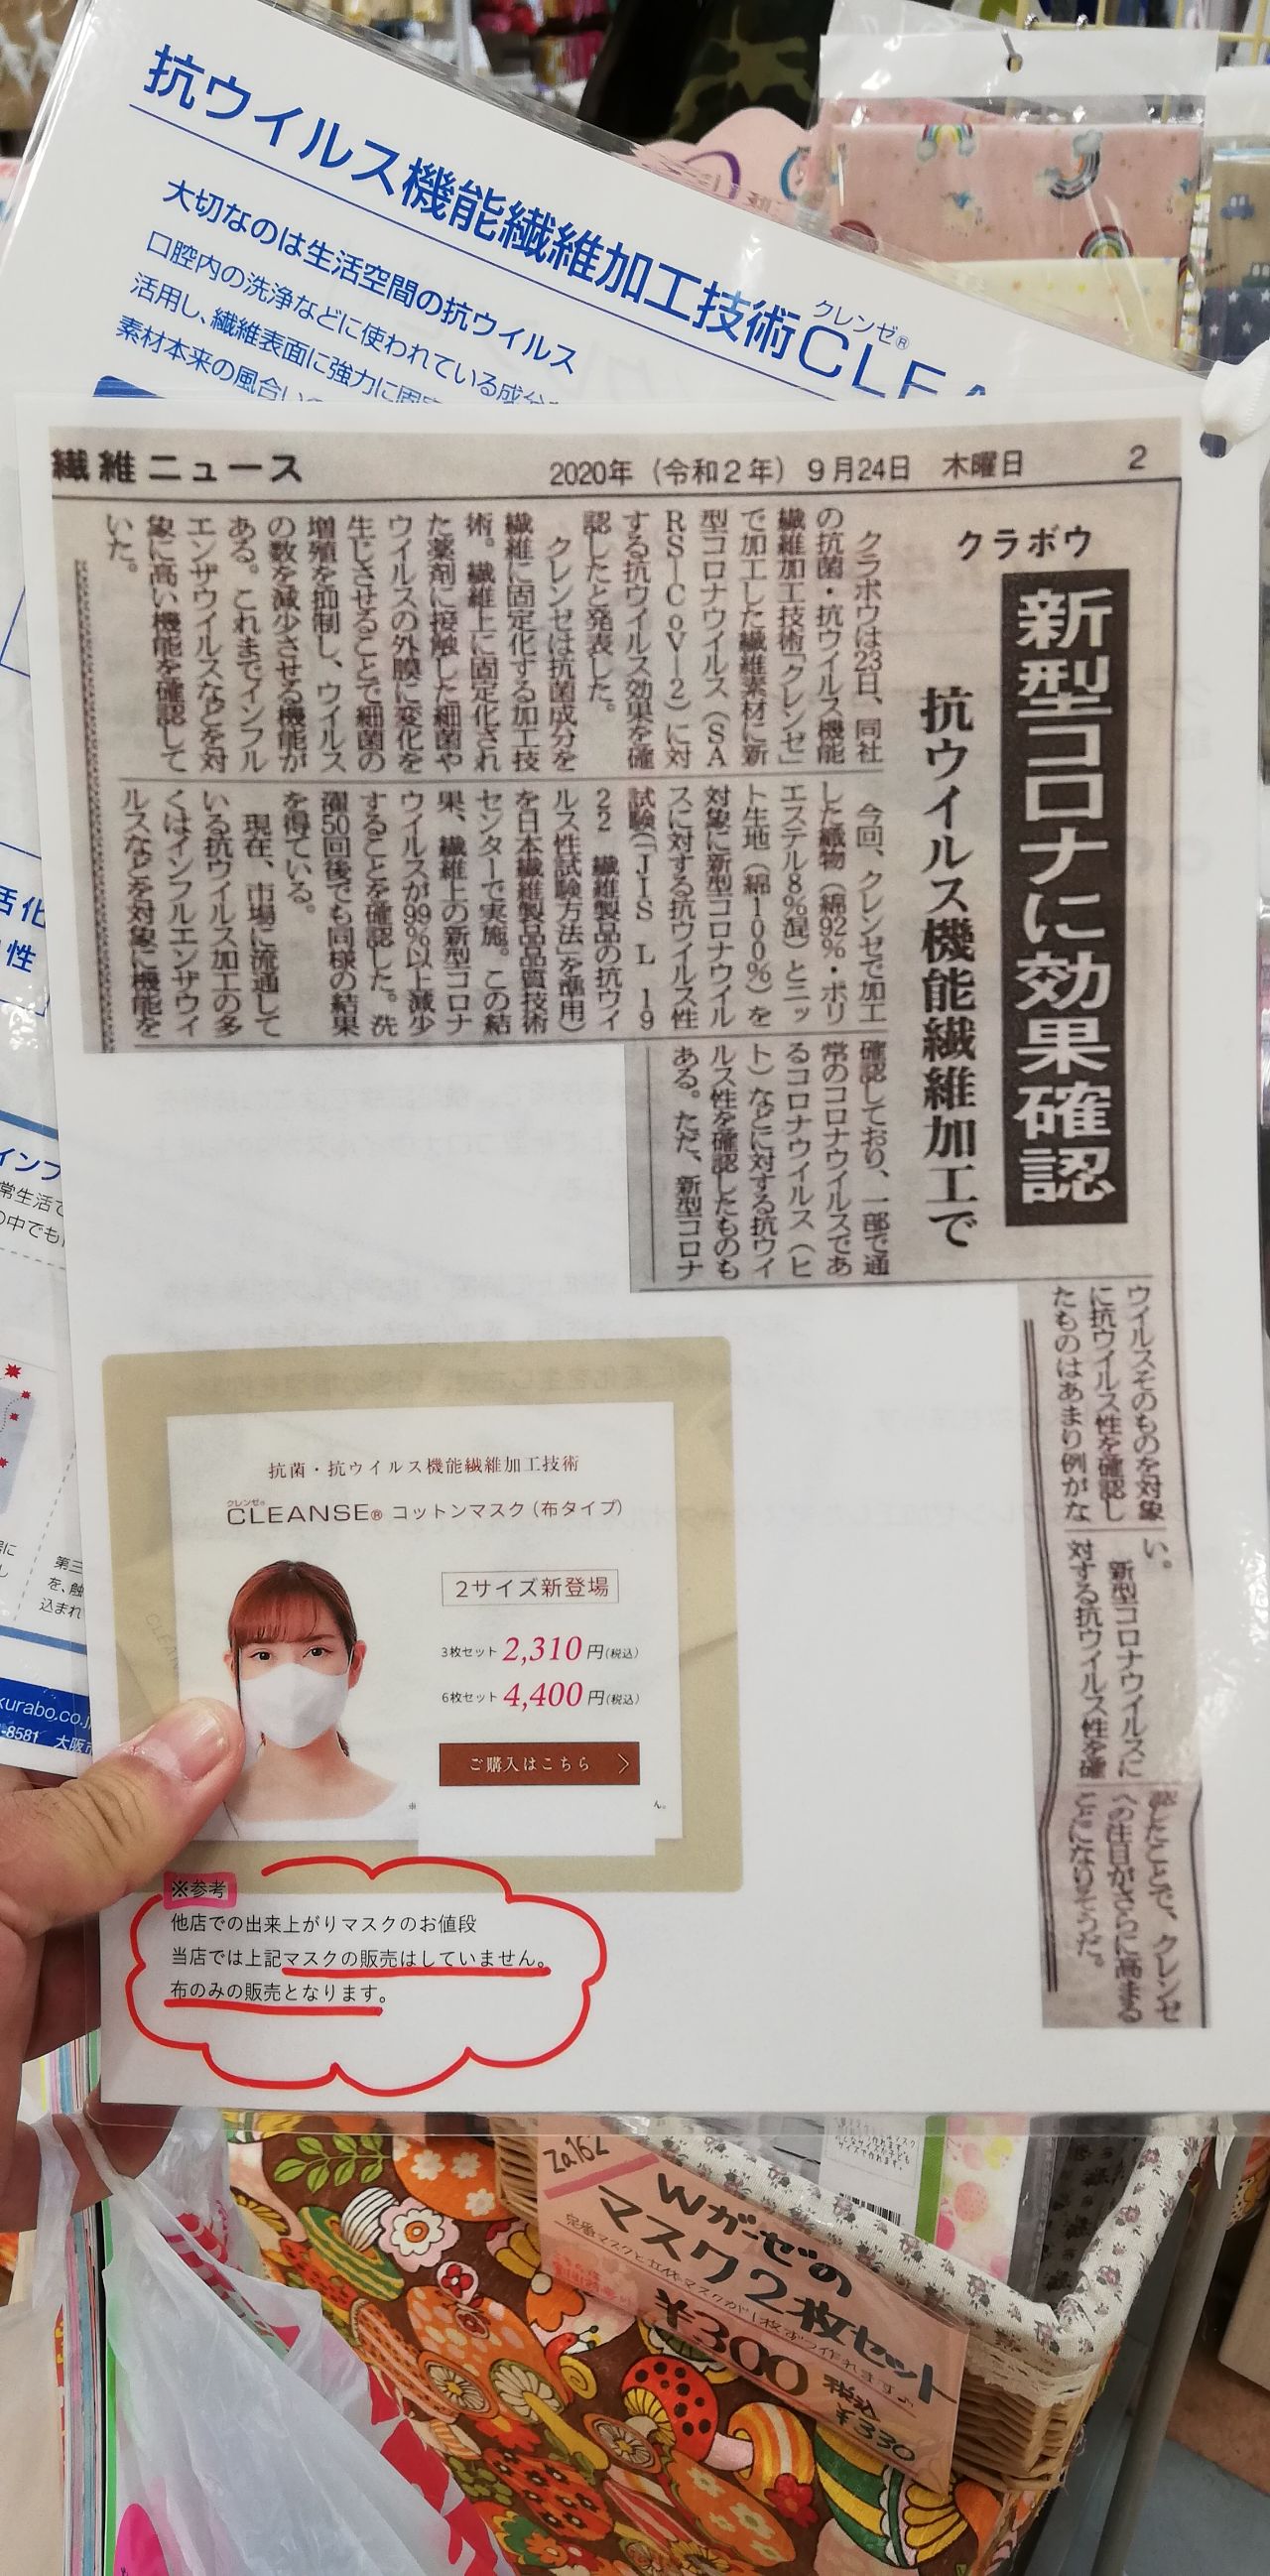 抗ウイルス機能繊維加工技術CLEA
クレンゼ®
大切なのは生活空間の抗ウイルス
口腔内の洗浄などに使われている成分
活用し、繊維表面に強力に固定
素材本来の風合い
繊維ニュース 2020年（令和2年）9月24日 木曜日 2
クラボウ
新型コロナに効果確認
抗ウイルス機能繊維加工で
クラボウは23日、同社
の抗菌・抗ウイルス機能
繊維加工技術「クレンゼ」
で加工した繊維素材に新
型コロナウイルス（SA
RS―CoV―2）に対
する抗ウイルス効果を確
認したと発表した。
クレンゼは抗菌成分を
繊維に固定化する加工技
術。繊維上に固定化され
た薬剤に接触した細菌や
ウイルスの外膜に変化を
生じさせることで細菌の
増殖を抑制し、ウイルス
の数を減少させる機能が
ある。これまでインフル
エンザウイルスなどを対
象に高い機能を確認して
いた。
今回、クレンゼで加工
した織物（綿92％・ポリ
エステル8％混）とニッ
ト生地（綿100％）を
対象に新型コロナウイル
スに対する抗ウイルス性
試験（「JIS L 19
22 繊維製品の抗ウイ
ルス性試験方法」を準用）
を日本繊維製品品質技術
センターで実施。この結
果、繊維上の新型コロナ
ウイルスが99％以上減少
することを確認した。洗
濯50回後でも同様の結果
を得ている。
現在、市場に流通して
いる抗ウイルス加工の多
くはインフルエンザウイ
ルスなどを対象に機能を
確認しており、一部で通
常のコロナウイルスであ
るコロナウイルス（ヒ
ト）などに対する抗ウイ
ルス性を確認したものも
ある。ただ、新型コロナ
ウイルスそのものを対象
に抗ウイルス性を確認し
たものはあまり例がな
い。
新型コロナウイルスに
対する抗ウイルス性を確
認したことで、クレンゼ
への注目がさらに高まる
ことになりそうだ。
抗菌・抗ウイルス機能繊維加工技術
クレンゼ®
CLEANSE® コットンマスク（布タイプ）
2サイズ新登場
3枚セット 2,310円（税込）
6枚セット 4,400円（税込）
ご購入はこちら
※
ん。
※参考
他店での出来上がりマスクのお値段
当店では上記マスクの販売はしていません。
布のみの販売となります。
活化
性
インフ
常生活で
の中でも
第三
を、触
込まれ
kurabo.co.j
-8581 大阪市
Za162
Wガーゼの
マスク2枚セット
定番マスクと立体マスクが1枚ずつ作れます♪
¥300
税込
¥330